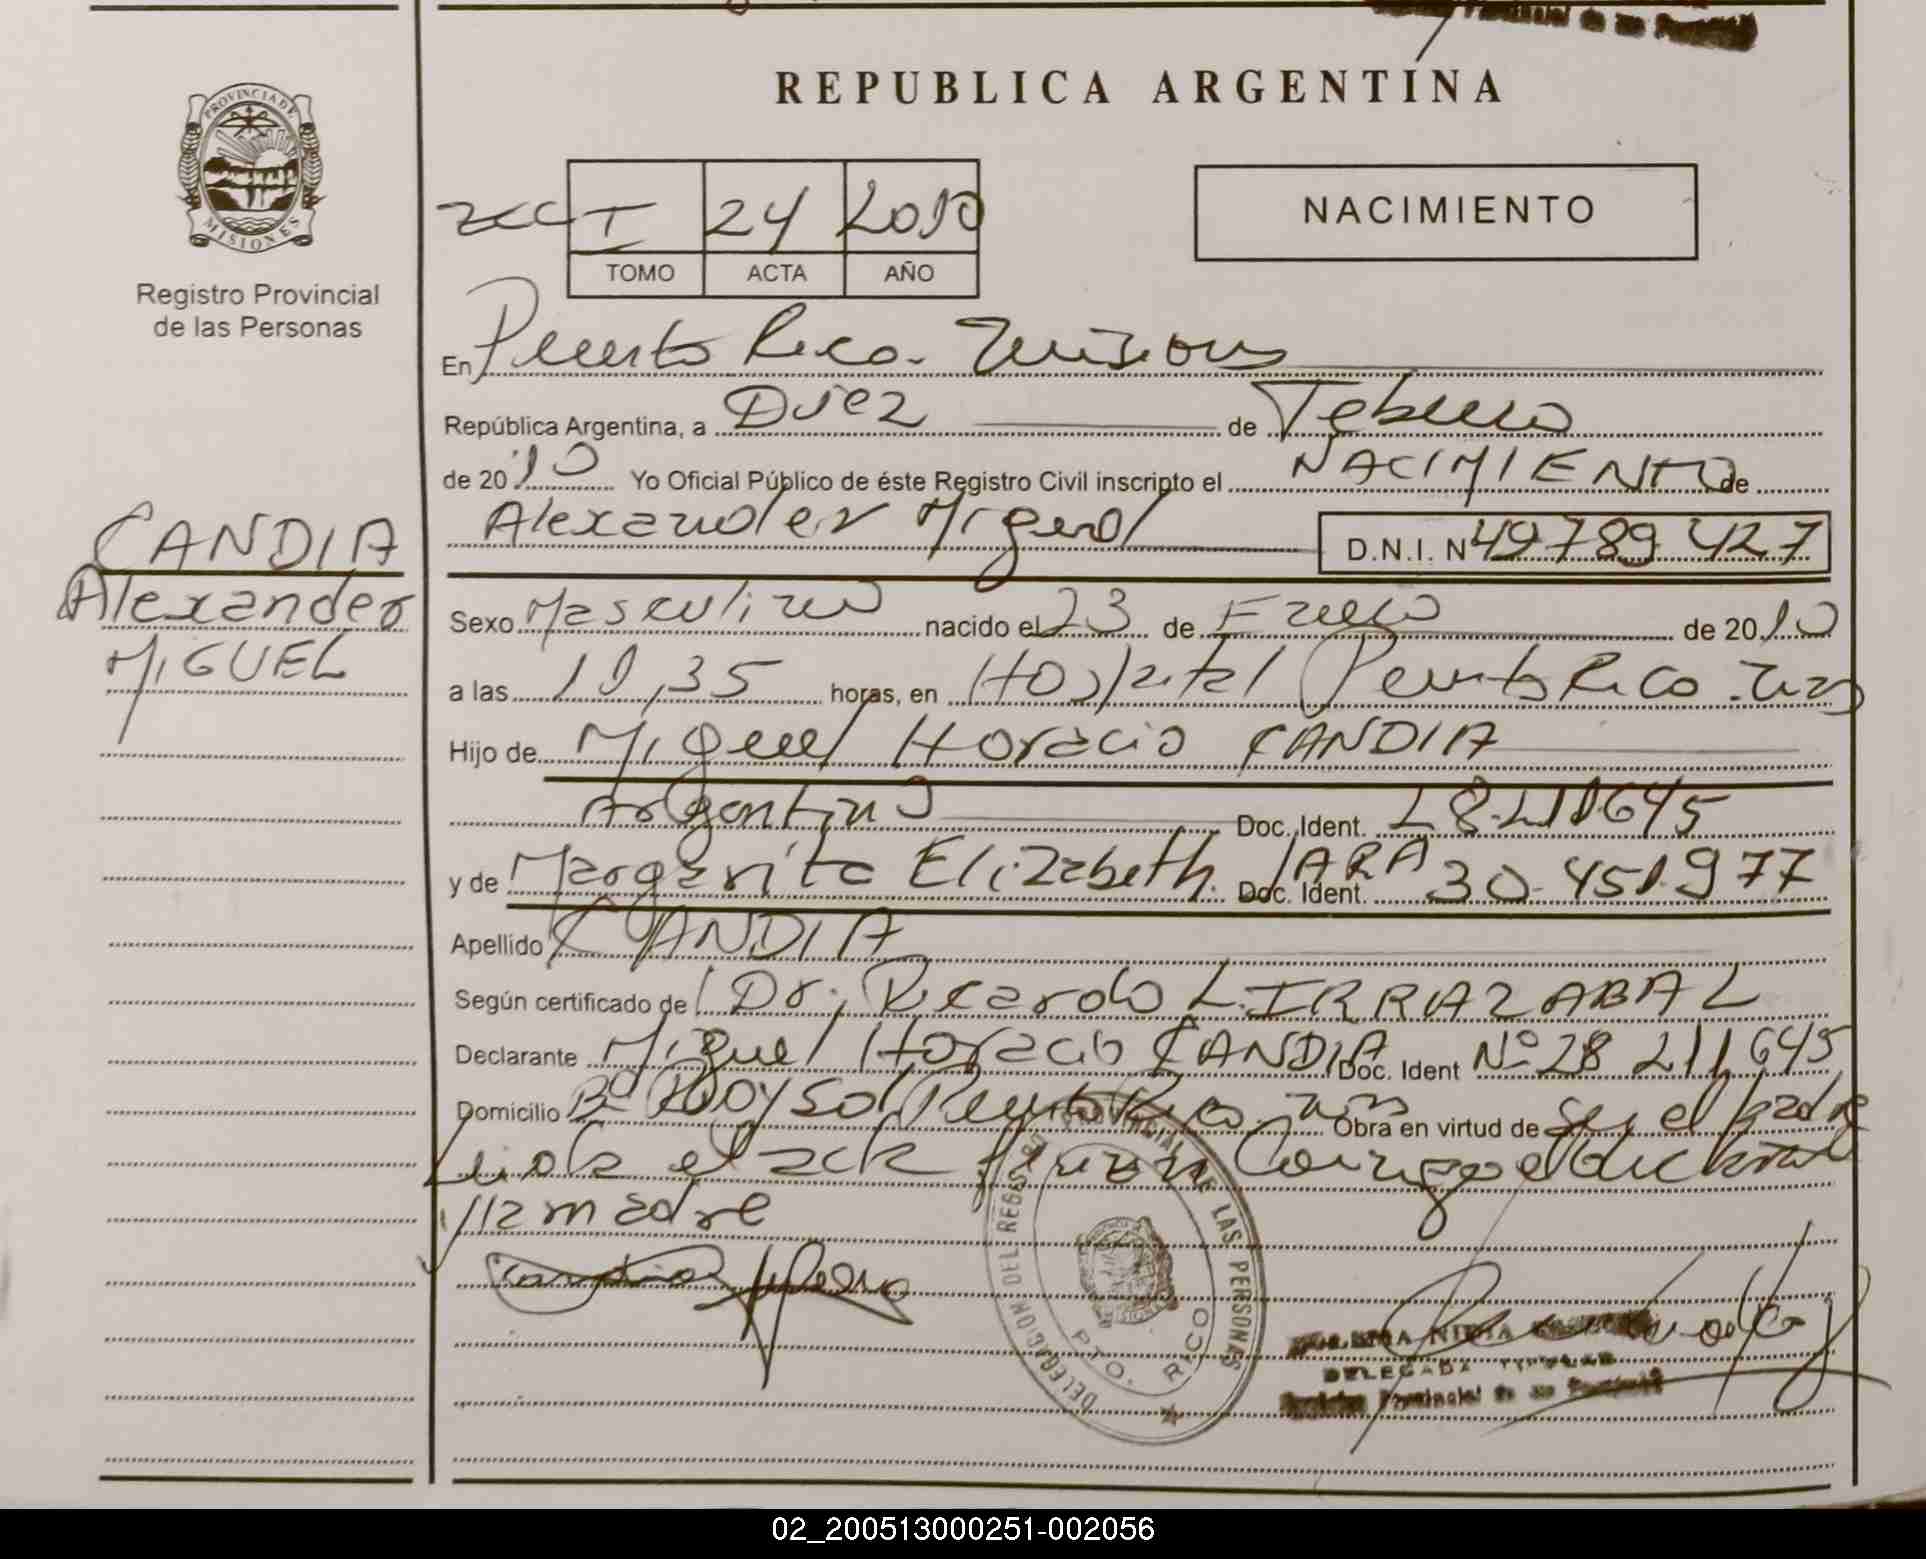 REPUBLICA ARGENTINA
PROVINCIA DE
MISIONES
Registro Provincial
de las Personas
I 24 2010
TOMO ACTA AÑO
NACIMIENTO
En Puerto Rico - Misiones
República Argentina, a Diez de Febrero
de 2010 Yo Oficial Público de éste Registro Civil inscripto el NACIMIENTO de
Alexander Miguel D.N.I. Nº 49789427
CANDIA
Alexander
MIGUEL
Sexo Masculino nacido el 23 de Enero de 2010
a las 10,35 horas, en Hospital Puerto Rico. Mnes
Hijo de Miguel Horacio CANDIA
Argentino Doc. Ident. 28.211.645
y de Margarita Elizabeth JARA Doc. Ident. 30.451.977
Apellido CANDIA
Según certificado de Dr. Ricardo L. IRRAZABAL
Declarante Miguel Horacio CANDIA Doc. Ident Nº 28 211 645
Domicilio Bº Puerto Rico. Mnes Obra en virtud de ser el padre
Leida el acta firman Conmigo el declarante
y la madre
DELEGACION DEL REGISTRO PROVINCIAL DE LAS PERSONAS
PTO. RICO
DELEGADA TITULAR
Provincial de las Personas
02_200513000251-002056